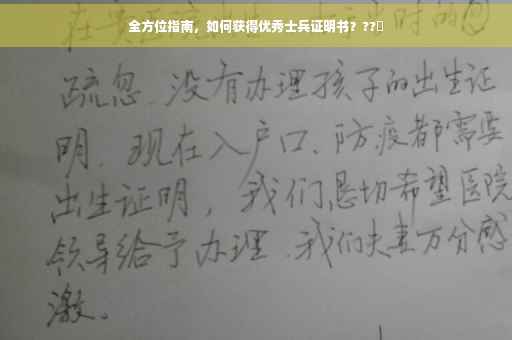 全方位指南，如何获得优秀士兵证明书？??
在贵 时的
疏忽.没有办理孩子的出生证
明.现在入户口、防疫都需要
出生证明，我们恳切希望医院
领导给予办理.我们夫妻万分感
激。